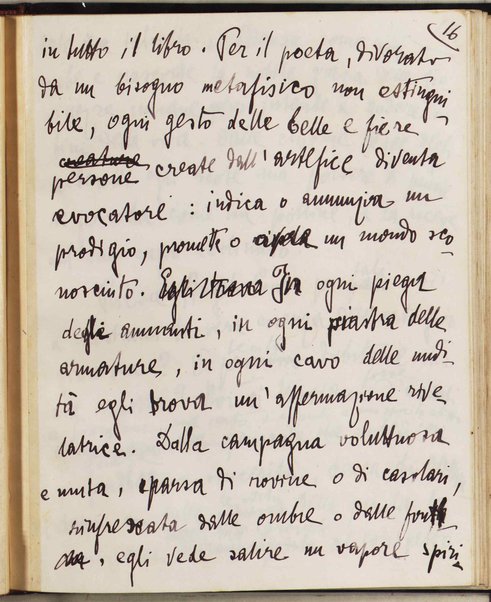 16
in tutto il libro. Per il poeta, divorato
da un bisogno metafisico non estingui-
bile, ogni gesto delle belle e fiere
creature
persone create dall'artefice diventa
evocatore: indica o annunzia un
prodigio, promette o apre un mondo sco-
nosciuto. Egli trova In ogni piega
degli ammanti, in ogni piastra delle
armature, in ogni cavo delle nudi-
tà egli trova un'affermazione rive-
latrice. Dalla campagna voluttuosa
e muta, sparsa di rovine o di casolari,
rinfrescata dalle ombre o dalle
egli vede salire un vapore spiri-